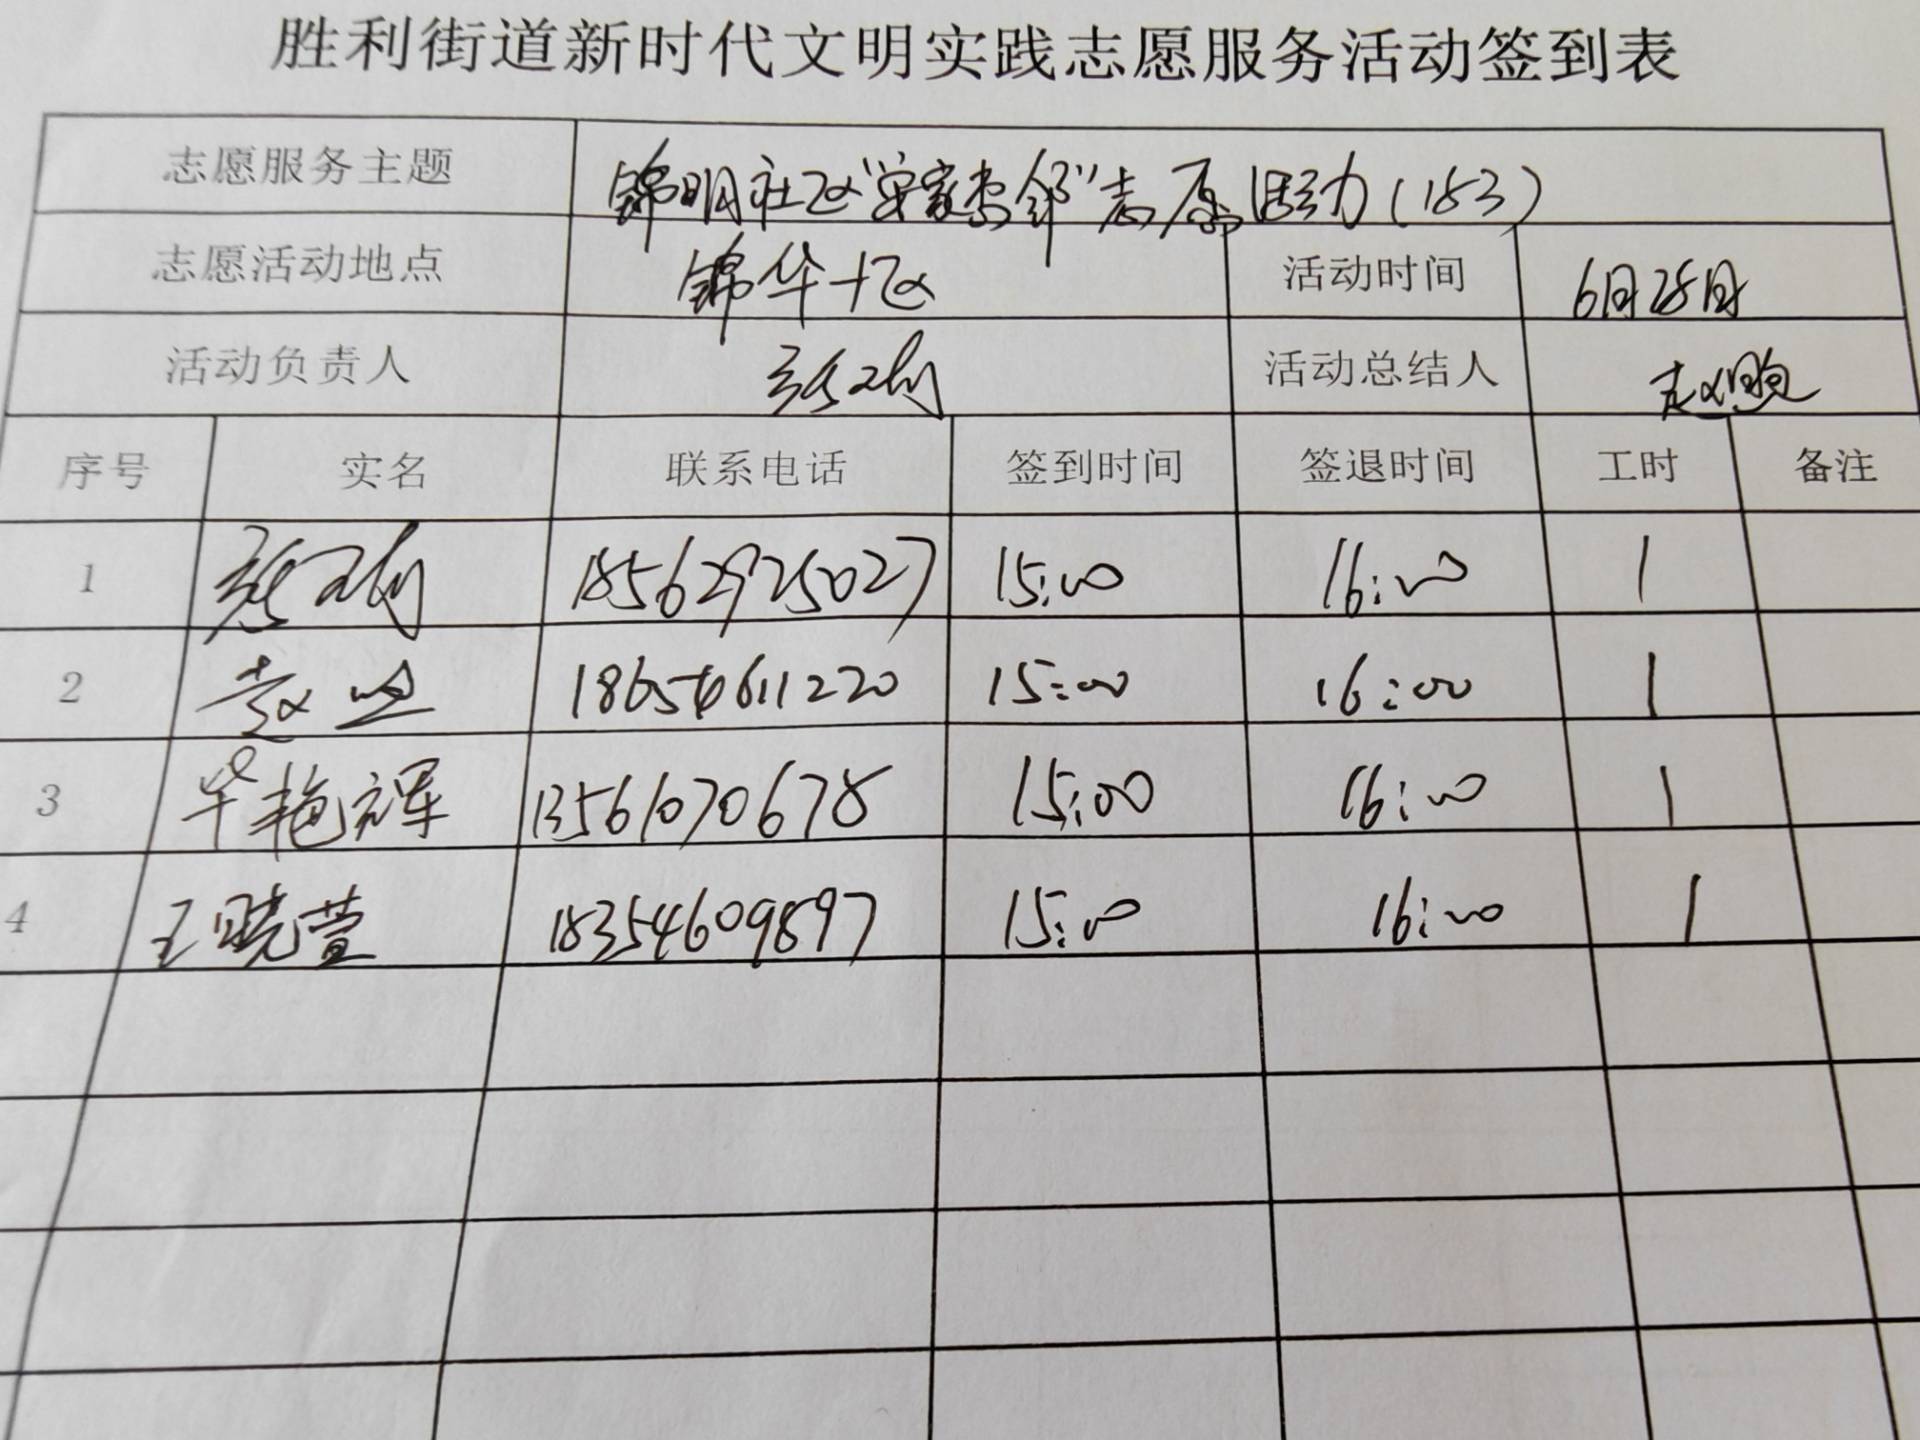 胜利街道新时代文明实践志愿服务活动签到表
志愿服务主题 锦明社区"安家李邻"志愿活动(183)
志愿活动地点 锦华十区 活动时间 6月28日
活动负责人 活动总结人 赵
序号 实名 联系电话 签到时间 签退时间 工时 备注
1 18562925027 15:00 16:00 1
2 赵 18654611220 15:00 16:00 1
3 毕艳辉 13561070678 15:00 16:00 1
4 王晓萱 18354609897 15:00 16:00 1